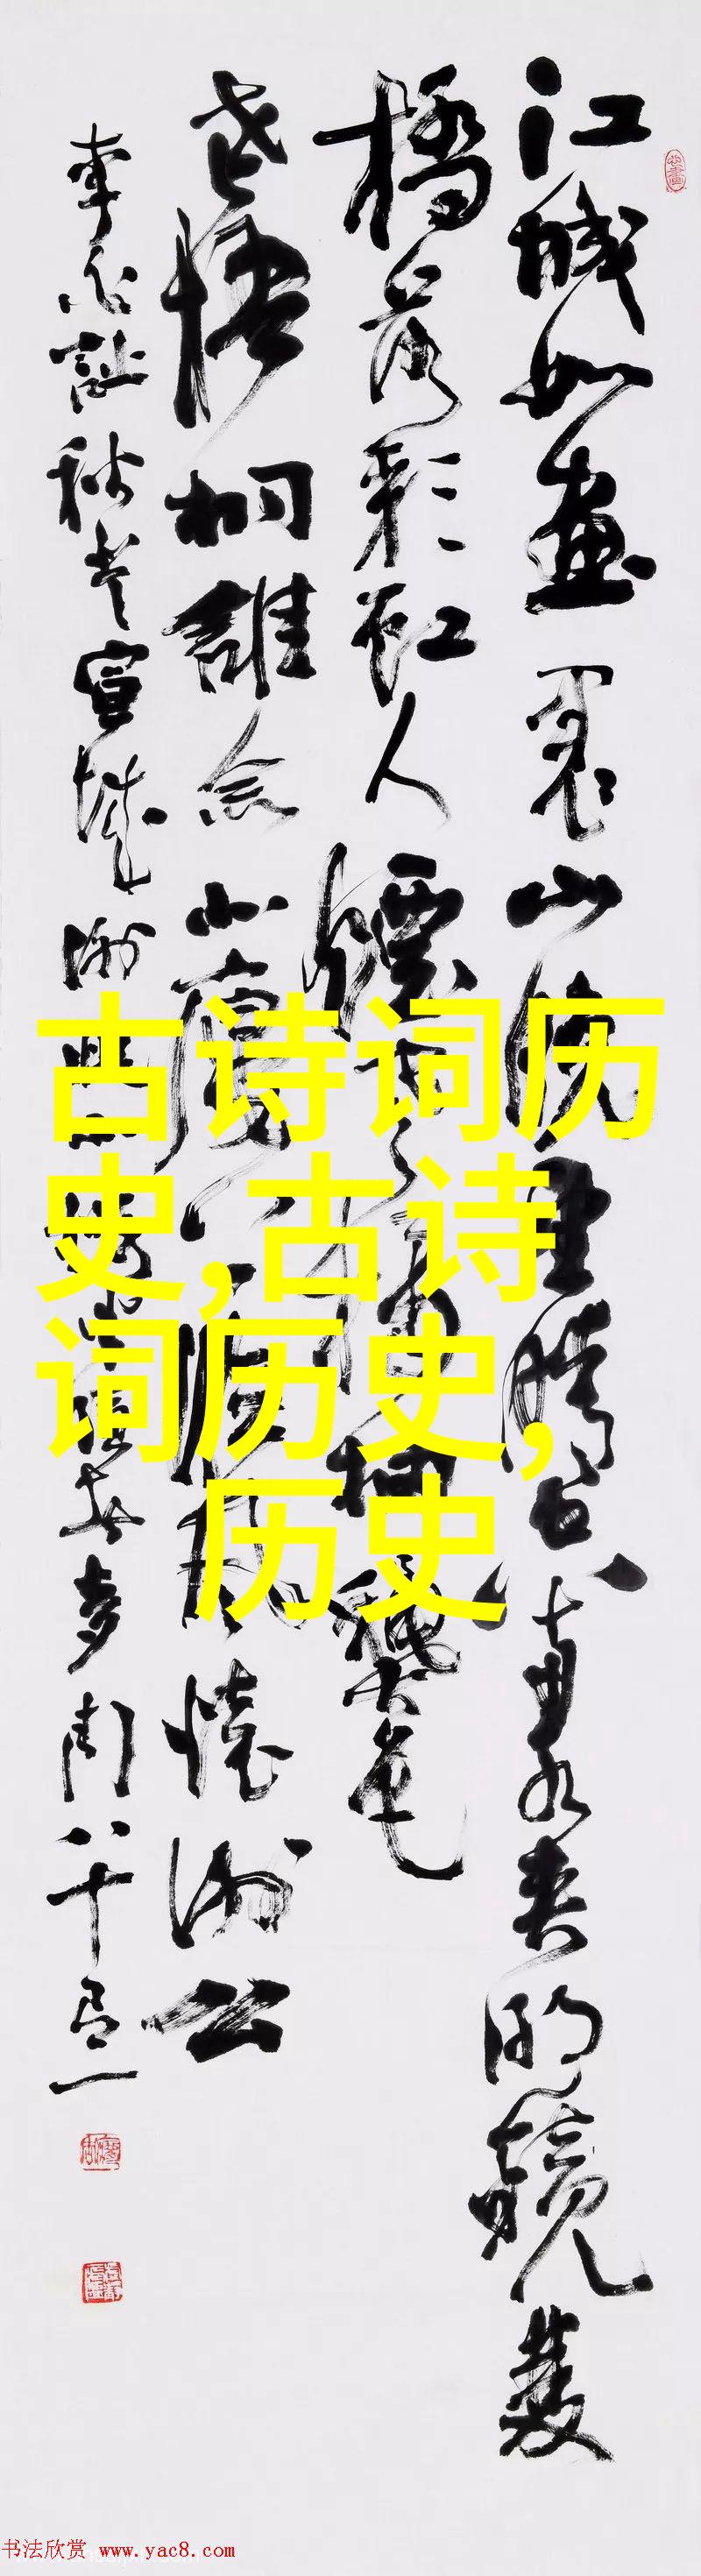 江城如畫裏山曉望晴空兩水夾明鏡雙
橋落彩虹人煙寒橘柚龝色
老梧桐誰念北樓上臨風懷謝公
李白詩秋登宣城謝朓北樓
八十有一
古诗词历
史,古诗
词历史,
历史
书法欣赏 www.yac8.com